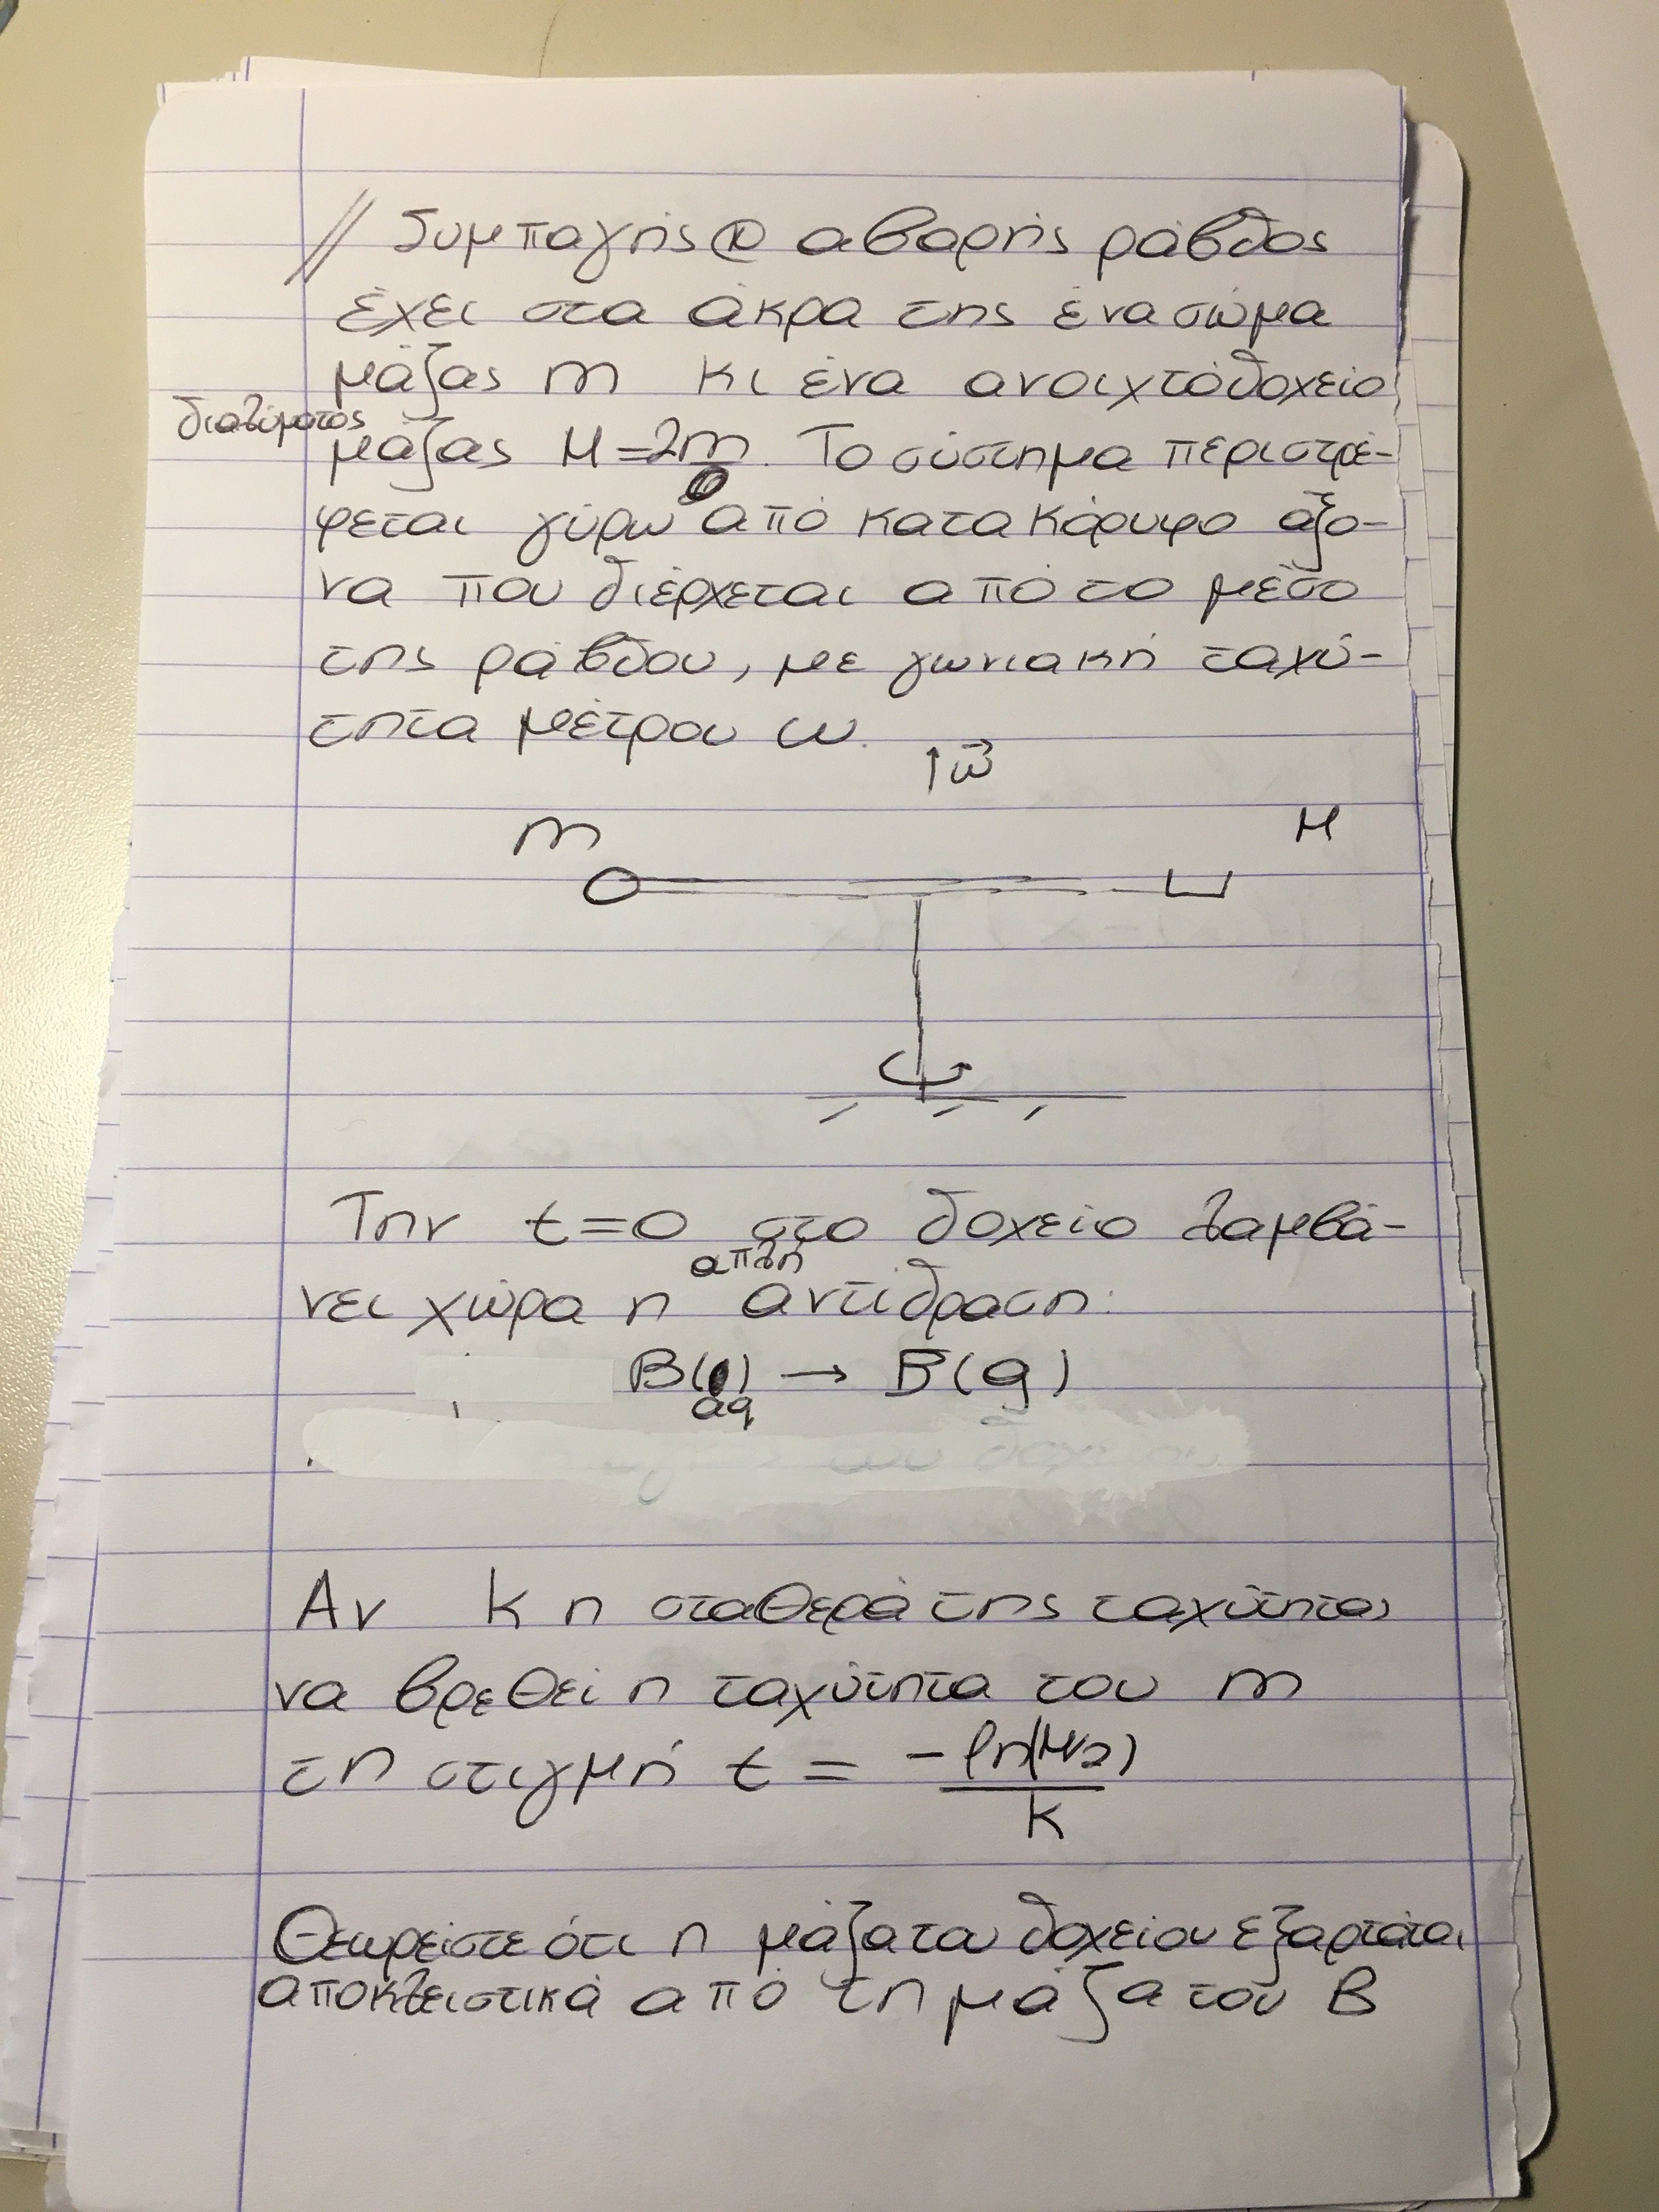 // Συμπαγής κ αβαρής ράβδος
έχει στα άκρα της ένα σώμα
μάζας m κι ένα ανοιχτό δοχείο
διαλύματος
μάζας M=2m. Το σύστημα περιστρέ-
φεται γύρω από κατακόρυφο άξο-
να που διέρχεται από το μέσο
της ράβδου, με γωνιακή ταχύ-
τητα μέτρου ω.
ω
m
M
Την t=0 στο δοχείο λαμβά-
απλή
νει χώρα η αντίδραση:
B(aq) → B(g)
Αν k η σταθερά της ταχύτητας
να βρεθεί η ταχύτητα του m
τη στιγμή t = -ln(M/2)/k
Θεωρείστε ότι η μάζα του δοχείου εξαρτάται
αποκλειστικά από τη μάζα του B